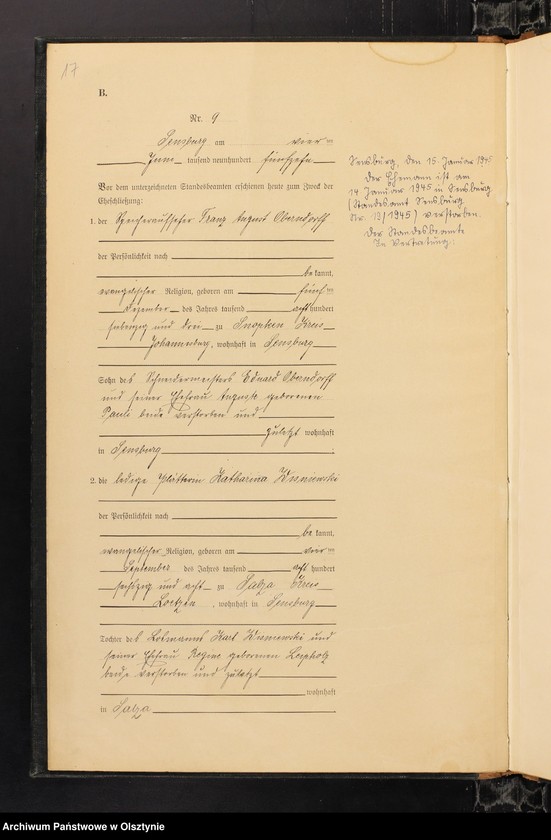 17
B.
Nr. 9
Sensburg am vier ten
Juni tausend neunhundert fünfzehn
Vor dem unterzeichneten Standesbeamten erschienen heute zum Zweck der
Eheschließung:
1. der Speicheraufseher Franz August Oberndorff
der Persönlichkeit nach
be kannt,
evangelischer Religion, geboren am fünf ten
Dezember des Jahres tausend acht hundert
siebenzig und drei zu Snopken Kreis
Johannisburg, wohnhaft in Sensburg
Sohn des Schneidermeisters Eduard Oberndorff
und seiner Ehefrau Auguste geborenen
Pauli beide verstorben und
zuletzt wohnhaft
in Sensburg.
2. die ledige Plätterin Katharina Wisniewski
der Persönlichkeit nach
be kannt,
evangelischer Religion, geboren am vier ten
September des Jahres tausend acht hundert
sechszig und acht zu Salza Kreis
Loetzen, wohnhaft in Sensburg
Tochter des Losmanns Karl Wisniewski und
seiner Ehefrau Regine geborenen
beide verstorben und zuletzt
wohnhaft
in Salza
Sensburg, den 15. Januar 1945
Der Ehemann ist am
14. Januar 1945 in Sensburg
(Standesamt Sensburg
Nr. 13/1945) verstorben.
Der Standesbeamte
In Vertretung:
Archiwum Państwowe w Olsztynie